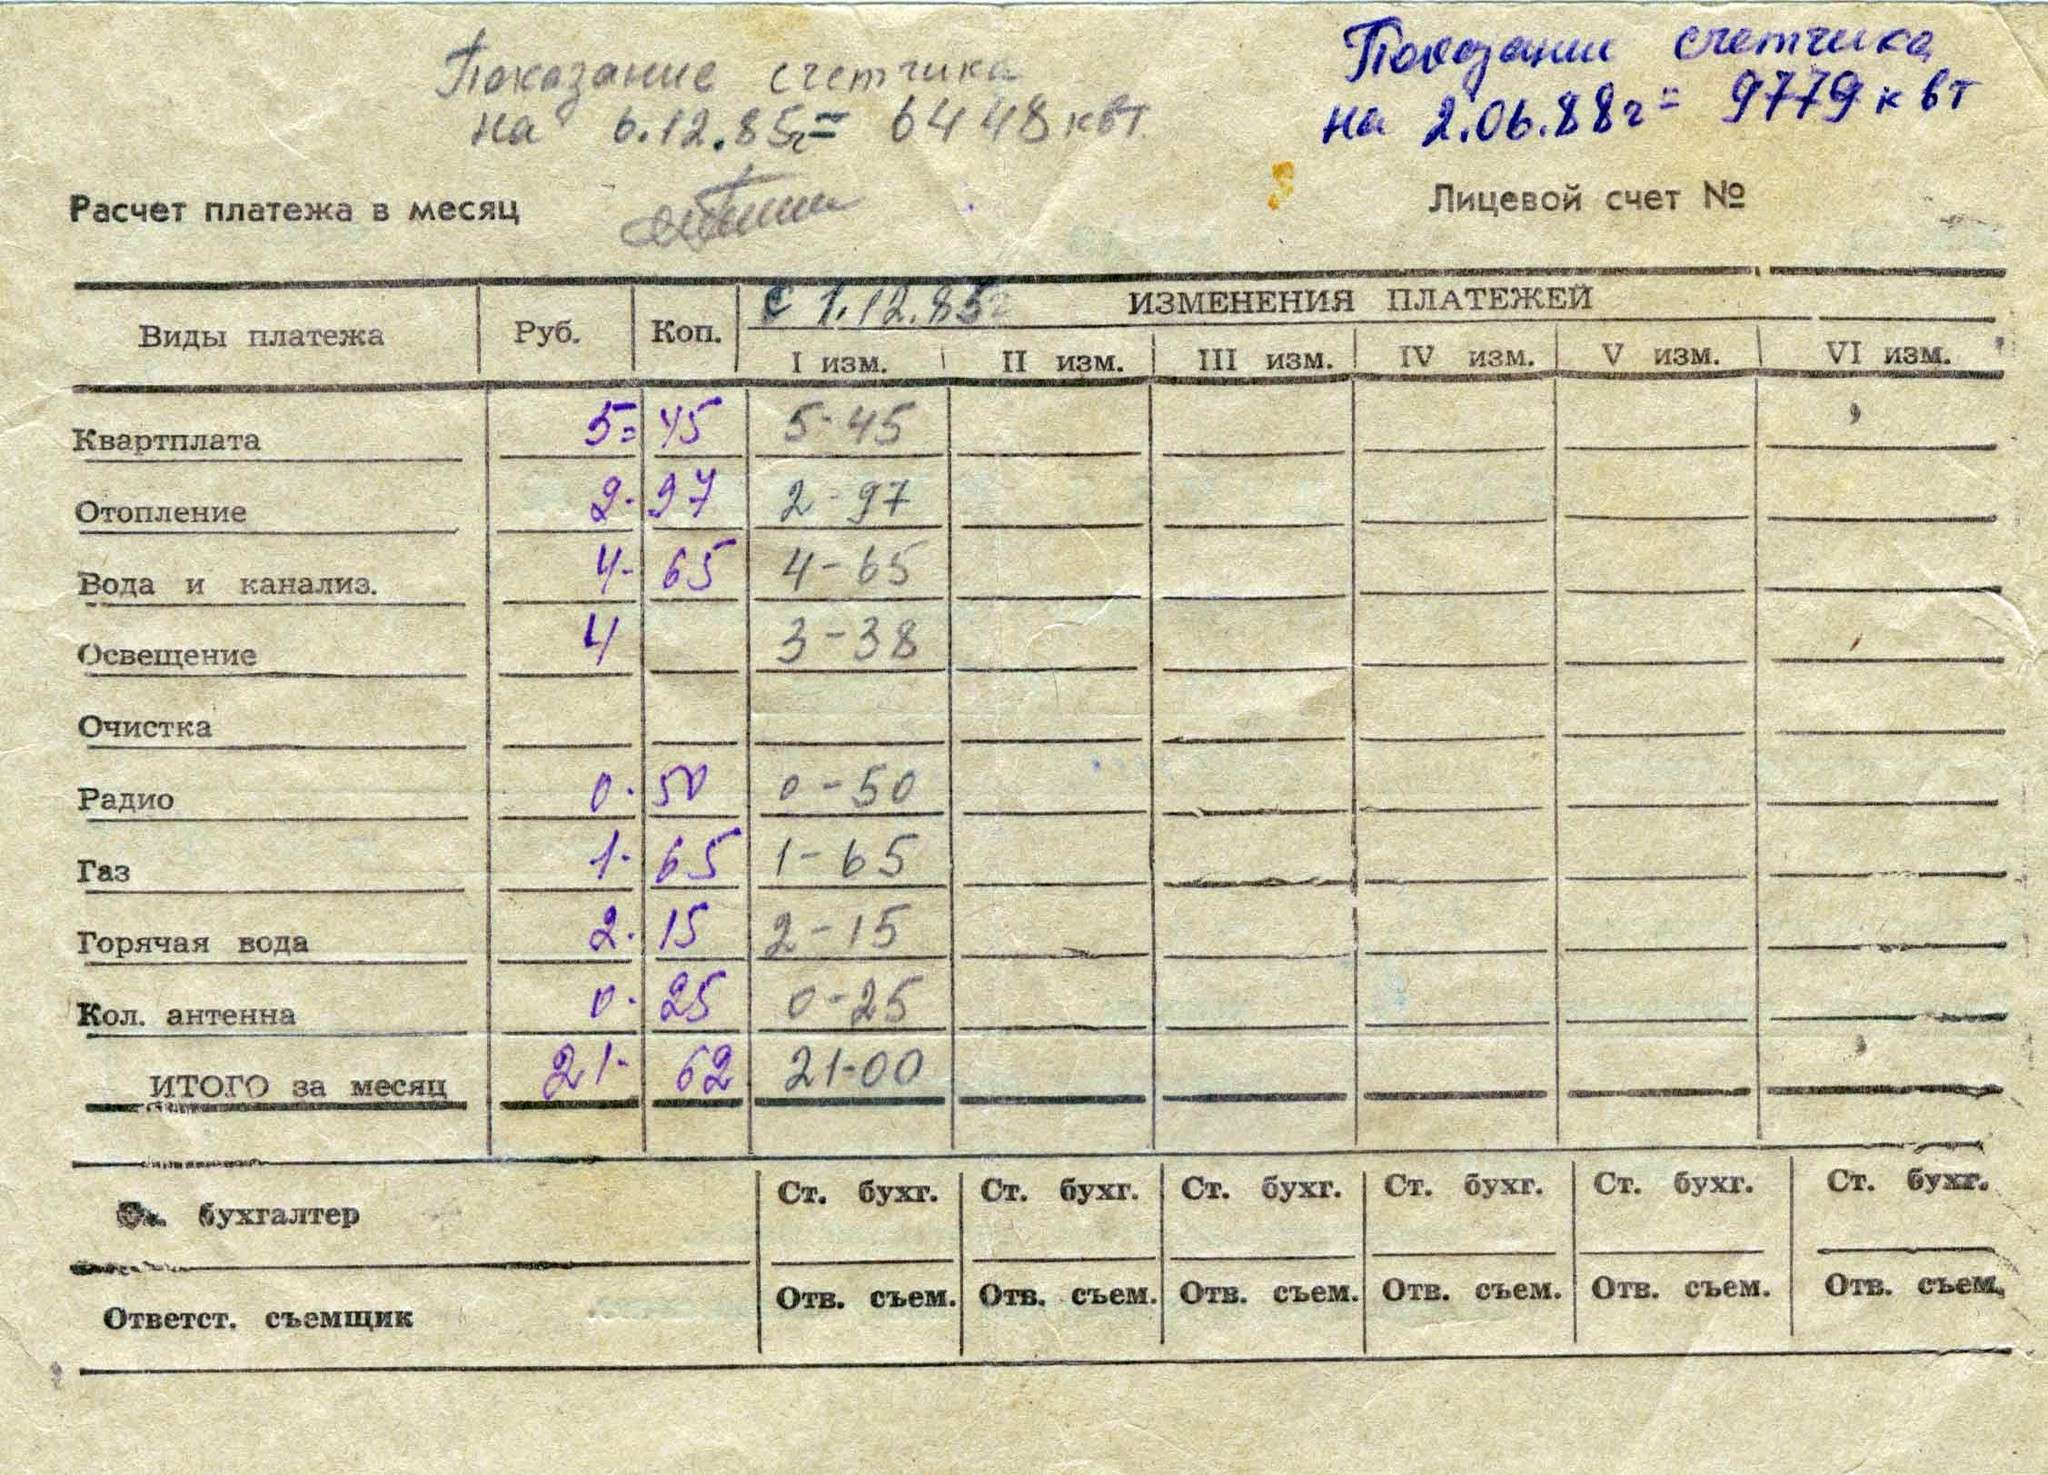 Показание счетчика
на 6.12.85г = 6448 квт.
Показание счетчика
на 2.06.88г = 9779 квт
Расчет платежа в месяц
Лицевой счет №
Виды платежа Руб. Коп. с 1.12.85г ИЗМЕНЕНИЯ ПЛАТЕЖЕЙ
I изм. II изм. III изм. IV изм. V изм. VI изм.
Квартплата 5= 45 5-45
Отопление 2- 97 2-97
Вода и канализ. 4- 65 4-65
Освещение 4 3-38
Очистка
Радио 0- 50 0-50
Газ 1- 65 1-65
Горячая вода 2- 15 2-15
Кол. антенна 0- 25 0-25
ИТОГО за месяц 21- 62 21-00
бухгалтер Ст. бухг. Ст. бухг. Ст. бухг. Ст. бухг. Ст. бухг. Ст. бухг.
Ответст. съемщик Отв. съем. Отв. съем. Отв. съем. Отв. съем. Отв. съем. Отв. съем.